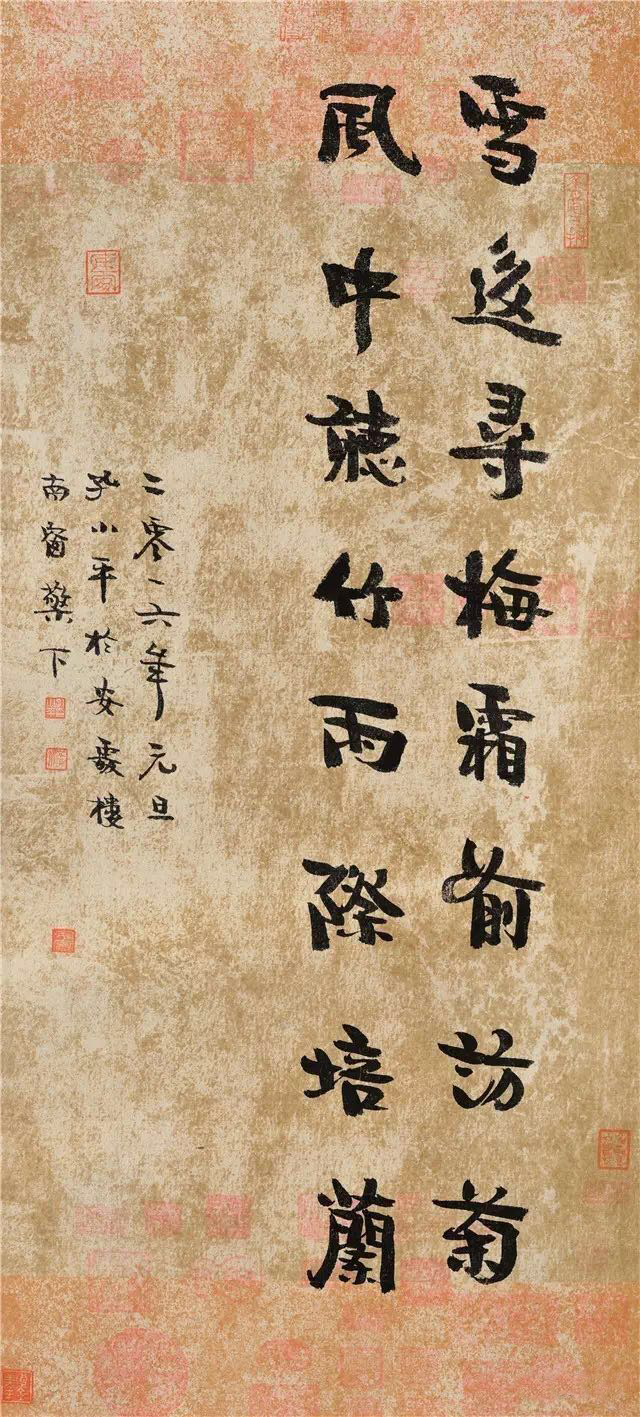 雪後尋梅霜前訪菊
風中聽竹雨際培蘭
二零一六年元旦
孔小平於安處樓
南窗檠下